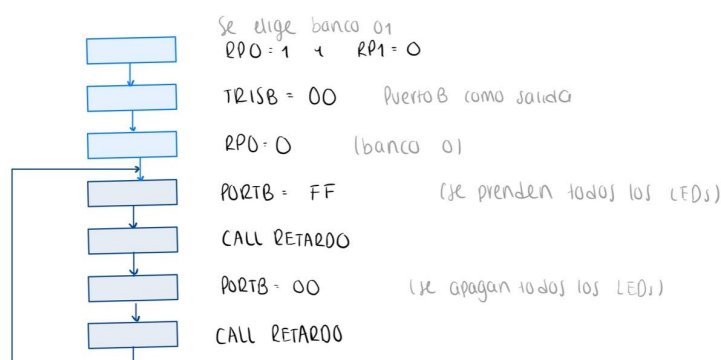 Se elige banco 01
RP0=1 y RP1=0
TRISB = 00 Puerto B como salida
RP0=0 (banco 0)
PORTB = FF (se prenden todos los LEDs)
CALL RETARDO
PORTB = 00 (se apagan todos los LEDs)
CALL RETARDO